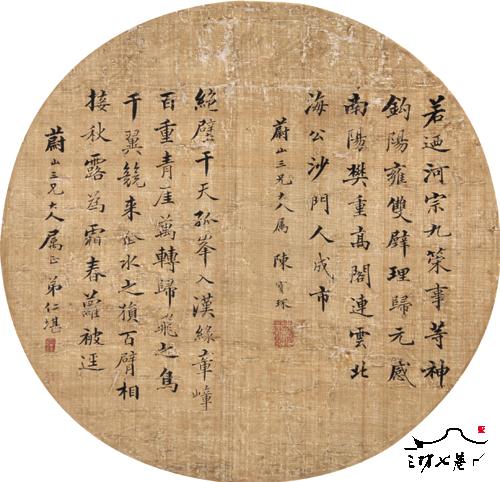 若迺河宗九策事等神
鈎陽雍雙璧理歸元感
南陽樊重高閣連雲北
海公沙門人成市
蔚山三兄大人属 陳寶琛
絕壁干天孤峯入漢綠章嶂
百重青崖萬轉歸飛之鳥
千翼競来企水之猨百臂相
接秋露為霜春蘿被逕
蔚山三兄大人属正 弟仁堪